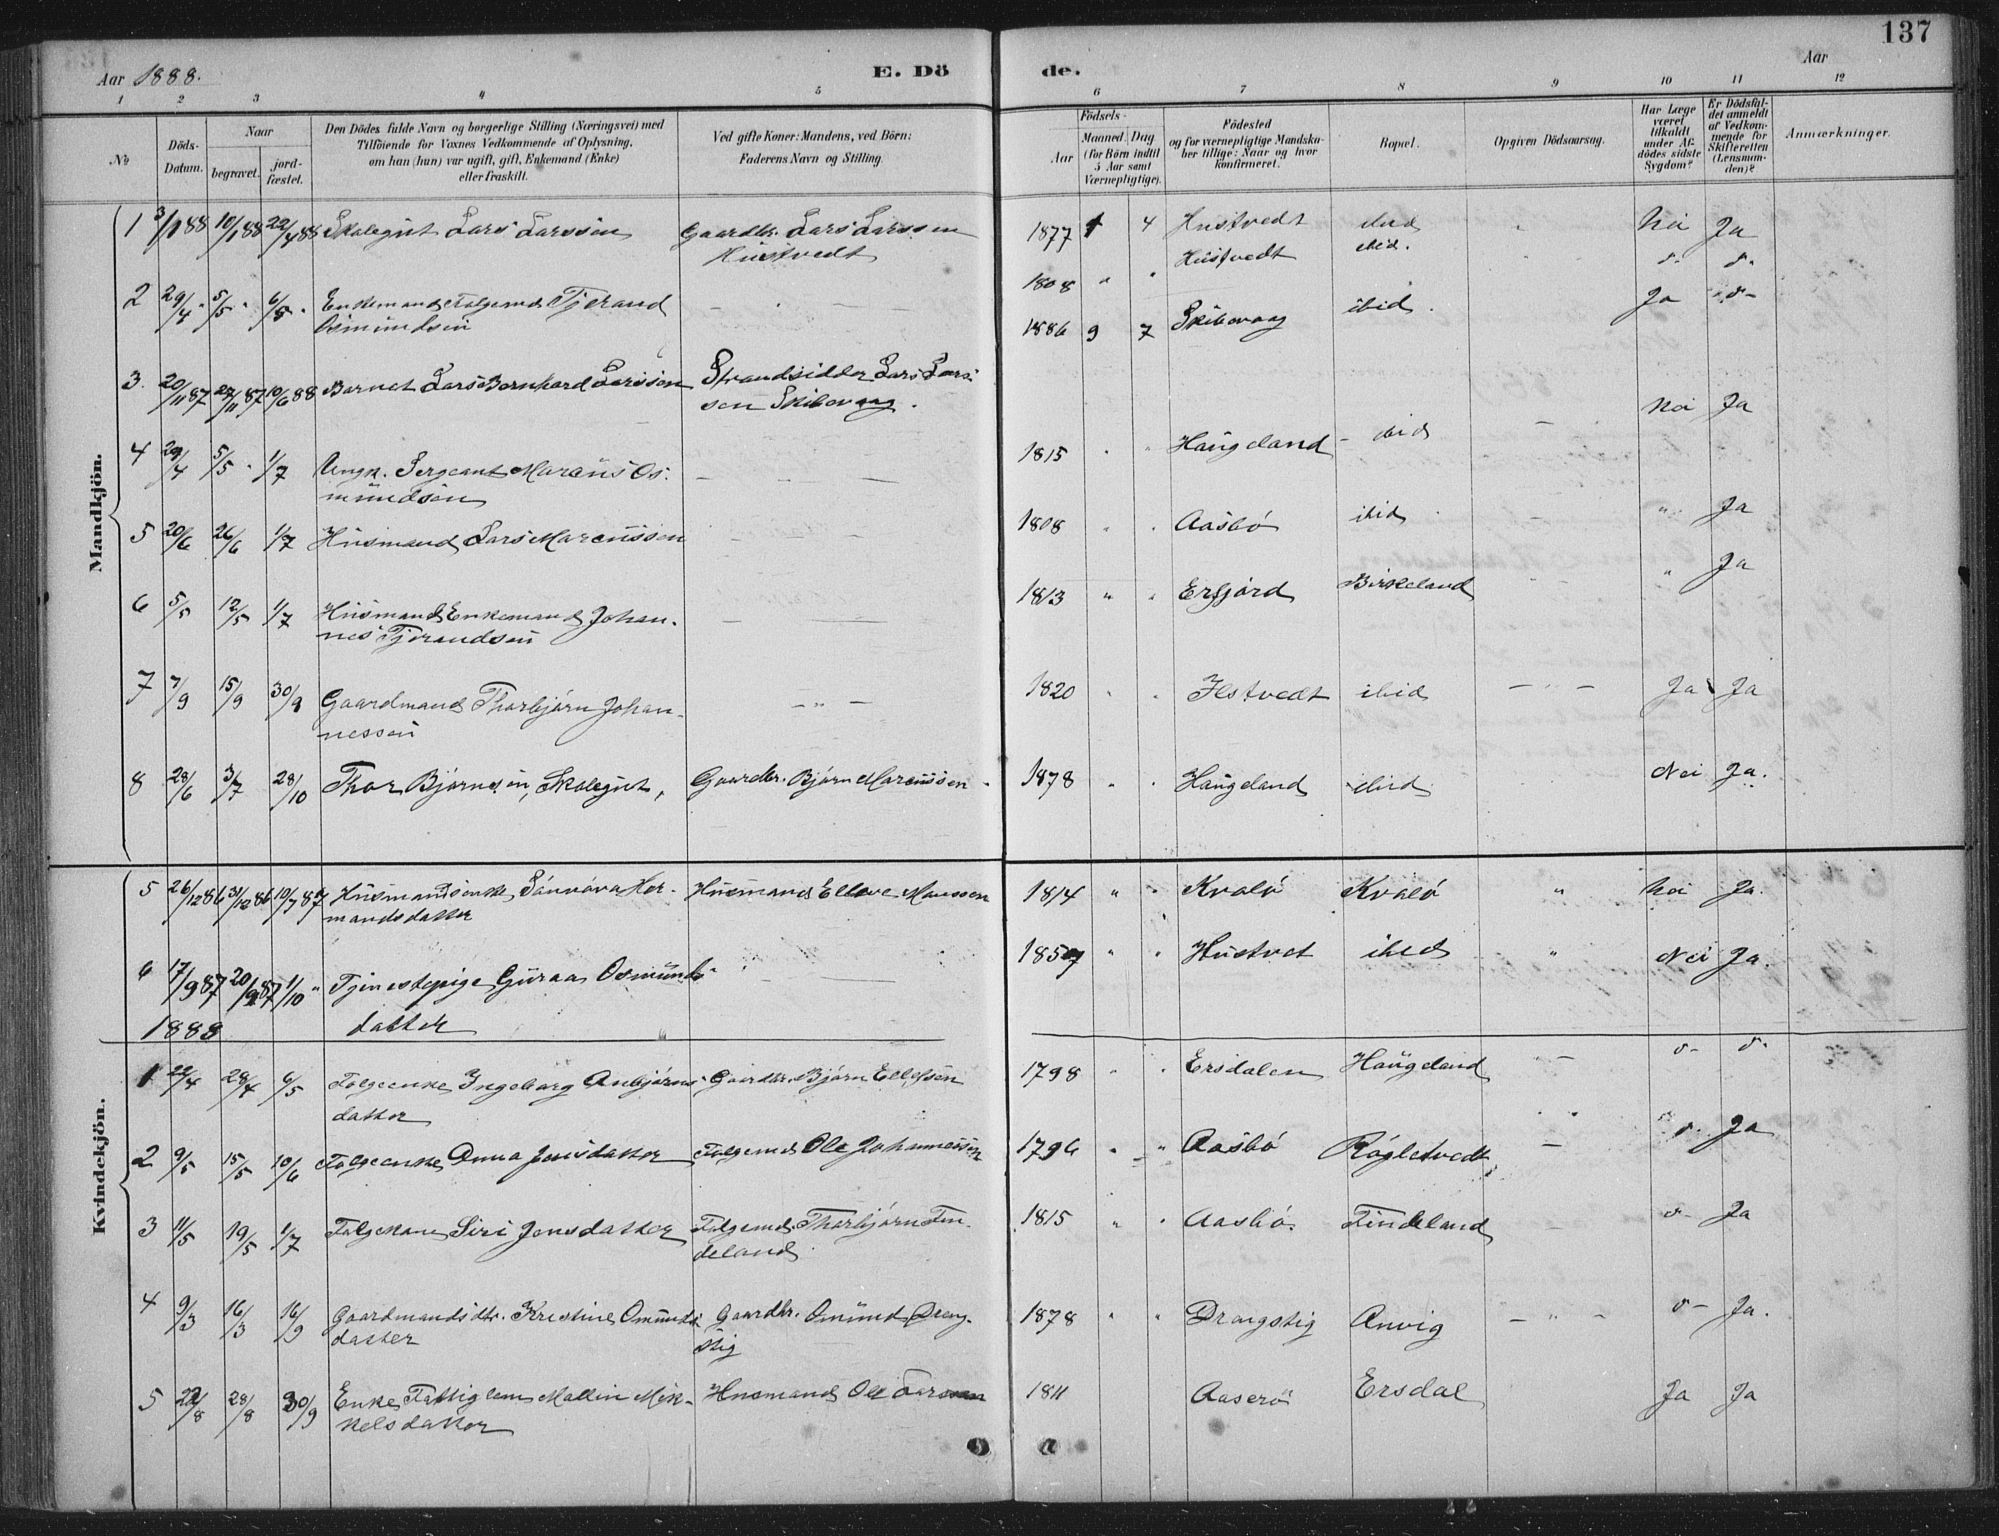 137
Aar 1888. E. Dö de. Aar
1 2 3 4 5 6 7 8 9 10 11 12
No
Döds-Datum.
Naar
begravet.
jord-fæstet.
Den Dödes fulde Navn og borgerlige Stilling (Næringsvei) med
Tilföiende for Voxnes Vedkommende af Oplysning,
om han (hun) var ugift, gift, Enkemand (Enke)
eller fraskilt.
Ved gifte Koner: Mandens, ved Börn:
Faderens Navn og Stilling.
Födsels-
Aar
Maaned. Dag
(for Börn indtil
5 Aar samt
Værnepligtige).
Födested
og for værnepligtige Mandska-
ber tillige: Naar og hvor
konfirmeret.
Bopæl.
Opgiven Dödsaarsag.
Har Læge
været
tilkaldt
under Af-
dödes sidste
Sygdom?
Er Dödsfal-
det anmeldt
af Vedkom-
mende for
Skifteretten
(Lensman-
den)?
Anmærkninger.
Mandkjön.
1 3/1 88 10/1 88 22/4 88 Skolegut Lars Larssen Gaardbr. Lars Larssen 1877 1 4 Hustvedt ibid Nei Ja
Hustvedt
2 29/4 " 5/5 " 6/5 " Enkemand Folgemd Tjerand 1808 " " Hustvedt ibid. d- d-
Osmundsen
3. 20/11 87 27/11 87 10/6 88 Barnet Lars Bernhard Larssen Strandsidder Lars Lars- 1886 9 7 Skibevaag ibid. Ja d-
sen Skibevaag.
4 29/4 5/5 " 1/7 Ungk. Sergeant Marcus Os- 1815 " " Haugeland ibid Nei Ja
mundsen
5 20/6 26/6 1/7 Husmand Lars Marcussen 1808 " " Aasbö ibid " Ja
6 5/5 12/5 1/7 Husmand Enkemand Johan- 1813 " " Erfjord Birkeland " Ja
nes Tjerandsen
7 7/9 15/9 30/9 Gaardmand Thorbjörn Johan- — " — 1820 " " Ilstvedt ibid — " — Ja Ja
nessen
8 28/6 3/7 28/10 Thor Björnsen, Skolegut, Gaardbr. Björn Marcussen 1878 " " Haugeland ibid Nei Ja.
Kvindekjön.
5 26/12 86 31/12 86 10/7 87 Husmandsenke, Sönnöva Her- Husmand Ellove Monssen 1814 " " Kvalö Kvalö " Nei Ja.
mandsdatter
6 17/9 87 20/9 87 1/10 " Tjenestepige Guraa Osmunds- 1857 " " Hustvet ibid " Nei Ja.
datter
1888
1 22/4 28/4 6/5 Folgeenke Ingeborg Anbjörns- Gaardbr. Björn Ellefsen 1798 " " Ersdalen Haugeland d- d-
datter
2 9/5 15/5 10/6 Folgeenke Anna Jensdatter Folgemd Ole Johannessen 1796 " " Aasbö Rögletvedt — d- Ja
3 11/5 19/5 1/7 Folgekone Siri Jensdatter Folgemd. Thorbjörn Tin- 1815 " " Aasbö. Tindeland d- Ja
deland
4 9/3 16/3 16/9 Gaardmandsdtr. Kristine Omunds- Gaardbr. Omund Drang- 1878 " " Drangstig Anvig — " — d- Ja.
datter stig
5 22/8 28/8 30/9 Enke Fattiglem Mallin Mik- Husmand Ole Larssen 1811 Aaserö Ersdal Ja Ja
kelsdatter